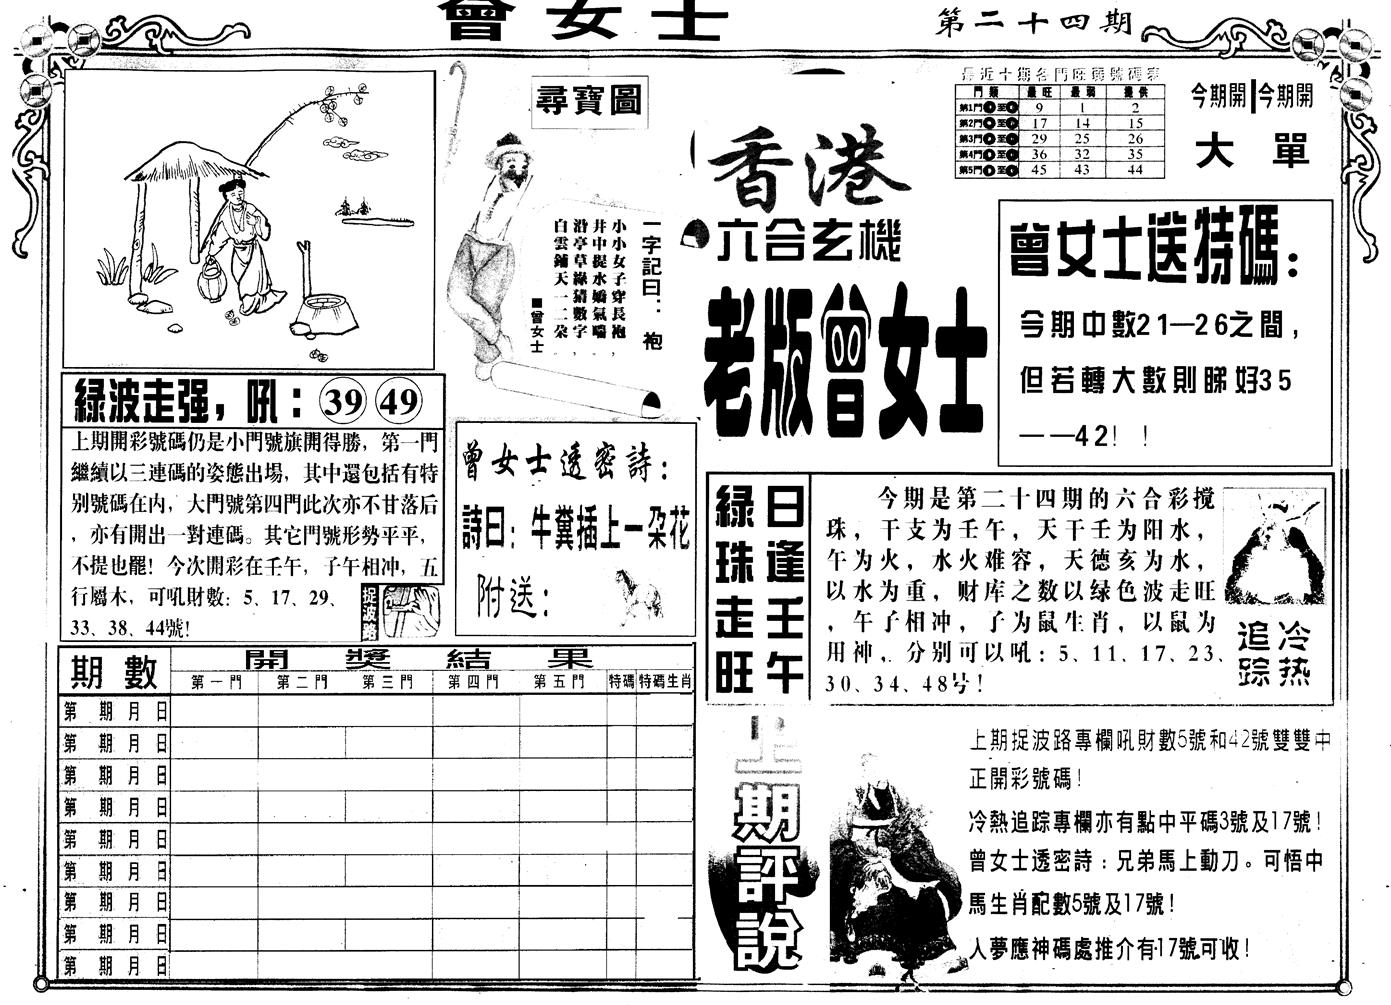 曾女士
第二十四期
尋寶圖
一字記曰：袍
小小女子穿長袍，
井中提水嬌氣喘，
沿亭草綠猜數字，
白雲鋪天一二朵
■曾女士
香港
六合玄機
老版曾女士
最近十期各門旺弱號碼表
門類 最旺 最弱 提供
第1門 至 9 1 2
第2門 至 17 14 15
第3門 至 29 25 26
第4門 至 36 32 35
第5門 至 45 43 44
今期開 今期開
大 單
曾女士送特碼：
今期中數21—26之間，
但若轉大數則睇好35
——42！！
綠波走强，吼：39 49
上期開彩號碼仍是小門號旗開得勝，第一門
繼續以三連碼的姿態出場，其中還包括有特
别號碼在内，大門號第四門此次亦不甘落后
，亦有開出一對連碼。其它門號形勢平平，
不提也罷！今次開彩在壬午，子午相冲，五
行屬木，可吼財數：5、17、29、
33、38、44號！
捉波路
曾女士透密詩：
詩曰：牛糞插上一朶花
附送：
日逢壬午
綠珠走旺
今期是第二十四期的六合彩搅
珠，干支为壬午，天干壬为阳水，
午为火，水火难容，天德亥为水，
以水为重，财库之数以绿色波走旺
，午子相冲，子为鼠生肖，以鼠为
用神，分别可以吼：5、11、17、23、
30、34、48号！
冷热
追踪
期數 開獎結果
第一門 第二門 第三門 第四門 第五門 特碼 特碼生肖
第 期 月 日
第 期 月 日
第 期 月 日
第 期 月 日
第 期 月 日
第 期 月 日
第 期 月 日
第 期 月 日
第 期 月 日
上期評說
上期捉波路專欄吼財數5號和42號雙雙中
正開彩號碼！
冷熱追踪專欄亦有點中平碼3號及17號！
曾女士透密詩：兄弟馬上動刀。可悟中
馬生肖配數5號及17號！
人夢應神碼處推介有17號可收！